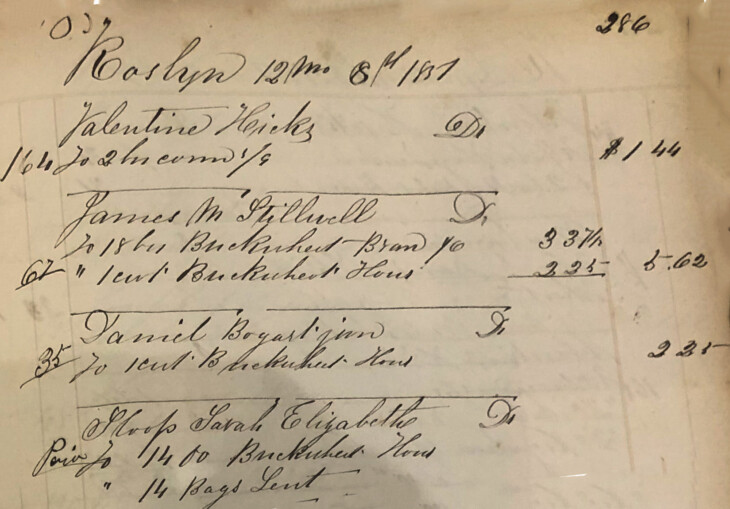 286
Roslyn 12 mo 8th 1851
Valentine Hicks Dr
164 To 2 bu corn $1 44
James M Stillwell Dr
To 18 bu Buckwheat Bran 1/6 3 37½
67 " 1 cwt Buckwheat Flour 2 25 5.62
Daniel Bogart jun Dr
35 To 1 cwt Buckwheat Flour 2 25
Sloop Sarah Elizabeth Dr
To 14 00 Buckwheat Flour
" 14 Bags Lent